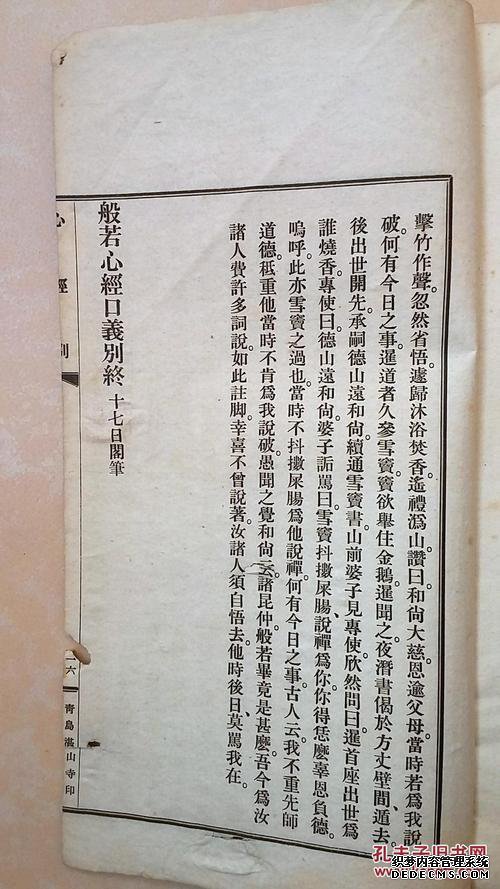 擊竹作聲。忽然省悟。遽歸沐浴焚香。遙禮溈山。讚曰。和尚大慈。恩逾父母。當時若爲我說
破。何有今日之事。暹道者久參雪竇。竇欲舉住金鵝。暹聞之。夜潛書偈於方丈壁間、遁去。
後出世開先。承嗣德山遠和尚。續通雪竇書。山前婆子見專使。欣然問曰。暹首座出世。爲
誰燒香。專使曰。德山遠和尚。婆子詬罵曰。雪竇抖擻屎腸、說禪爲你。你得恁麽辜恩負德。
嗚呼。此亦雪竇之過也。當時不抖擻屎腸爲他說禪。何有今日之事。古人云。我不重先師
道德。秪重他當時不肯爲我說破。愚聞之覺和尚云。諸昆仲。般若畢竟是甚麽。吾今爲汝
諸人費許多詞說。如此註脚。幸喜不曾說著。汝諸人須自悟去。他時後日。莫罵我在。
般若心經口義別終 十七日閣筆
心經 別
二六
青島湛山寺印
孔夫子旧书网
织梦内容管理系统
DEDECMS.COM